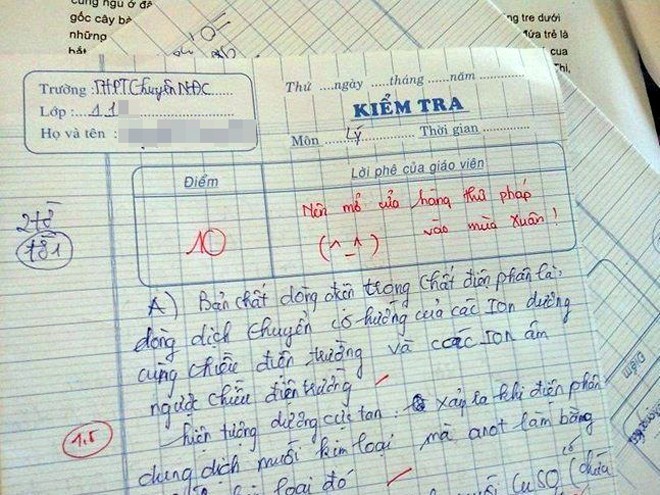 cung ngủ ở đâ
gốc cây bà
những
hát
ng tre dưới
đứa trẻ là
cua
Thi,
Trường : THPT Chuyên NĐC
Lớp : 11
Họ và tên :
Thứ ....ngày ......tháng ......năm
KIỂM TRA
Môn Lý Thời gian
Điểm
Lời phê của giáo viên
10
Nên mở cửa hàng thư pháp
(^_^) vào mùa xuân !
2 tờ
181
A) Bản chất dòng điện trong chất điện phân là,
dòng dịch chuyển có hướng của các Ion dương
cùng chiều điện trường và các Ion âm
ngược chiều điện trường
1,5
hiện tượng dương cực tan : xảy ra khi điện phân
dung dịch muối kim loại mà anot làm bằng
loại đó
CuSO4
Điểm